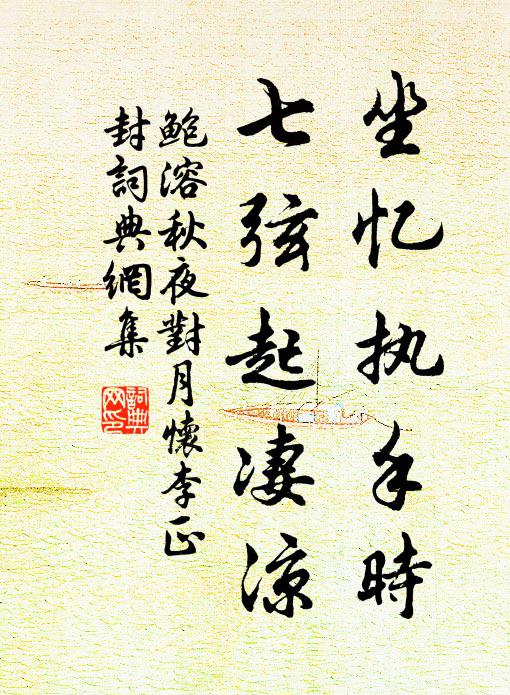 坐忆执手時
七弦起凄凉
鲍溶秋夜對月懷李正
封詞典網集
詞典網印